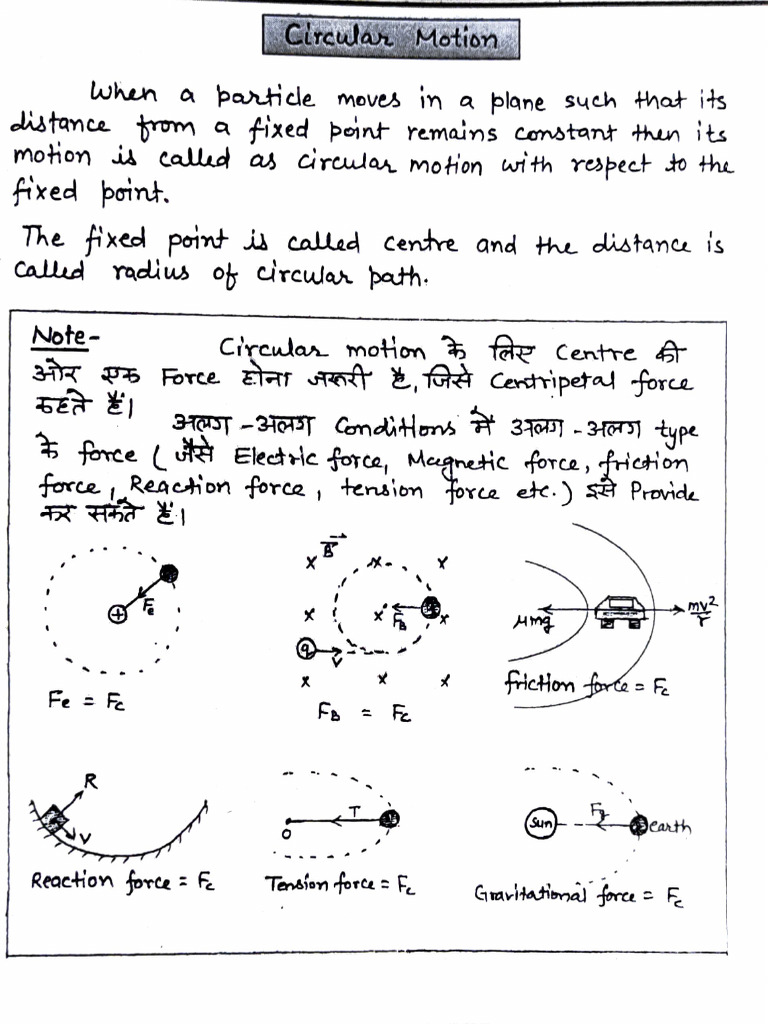 Circular Motion
When a particle moves in a plane such that its
distance from a fixed point remains constant then its
motion is called as circular motion with respect to the
fixed point.
The fixed point is called centre and the distance is
called radius of circular path.
Note-
Circular motion के लिए Centre की
ओर एक Force होना जरूरी है, जिसे Centripetal force
कहते हैं।
अलग-अलग Conditions में अलग-अलग type
के force ( जैसे Electric force, Magnetic force, friction
force, Reaction force, tension force etc.) इसे Provide
कर सकते हैं।
+ Fe
Fe = Fc
B x x x
x x FB x
q v
x x x
FB = Fc
μmg mv²/r
friction force = Fc
R
v
Reaction force = Fc
T
O
Tension force = Fc
Sun Fg earth
Gravitational force = Fc